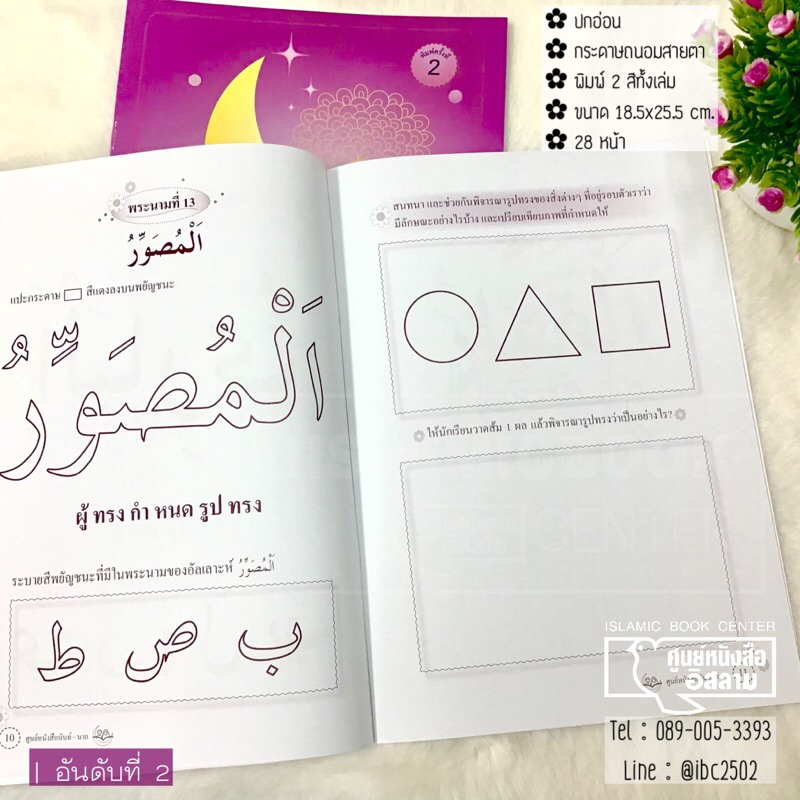 พิมพ์ครั้งที่
2
✿ ปกอ่อน
✿ กระดาษถนอมสายตา
✿ พิมพ์ 2 สีทั้งเล่ม
✿ ขนาด 18.5x25.5 cm.
✿ 28 หน้า
พระนามที่ 13
اَلْمُصَوِّرُ
แปะกระดาษ สีแดงลงบนพยัญชนะ
اَلْمُصَوِّرُ
ผู้ ทรง กำ หนด รูป ทรง
ระบายสีพยัญชนะที่มีในพระนามของอัลเลาะห์ اَلْمُصَوِّرُ
ط ص ب
10 ศูนย์หนังสือนันท์ - นาถ
สนทนา และช่วยกันพิจารณารูปทรงของสิ่งต่างๆ ที่อยู่รอบตัวเราว่า
มีลักษณะอย่างไรบ้าง และเปรียบเทียบภาพที่กำหนดให้
ให้นักเรียนวาดส้ม 1 ผล แล้วพิจารณารูปทรงว่าเป็นอย่างไร?
11
ISLAMIC BOOK CENTER
ศูนย์หนังสือ
อิสลาม
Tel : 089-005-3393
Line : @ibc2502
| อันดับที่ 2